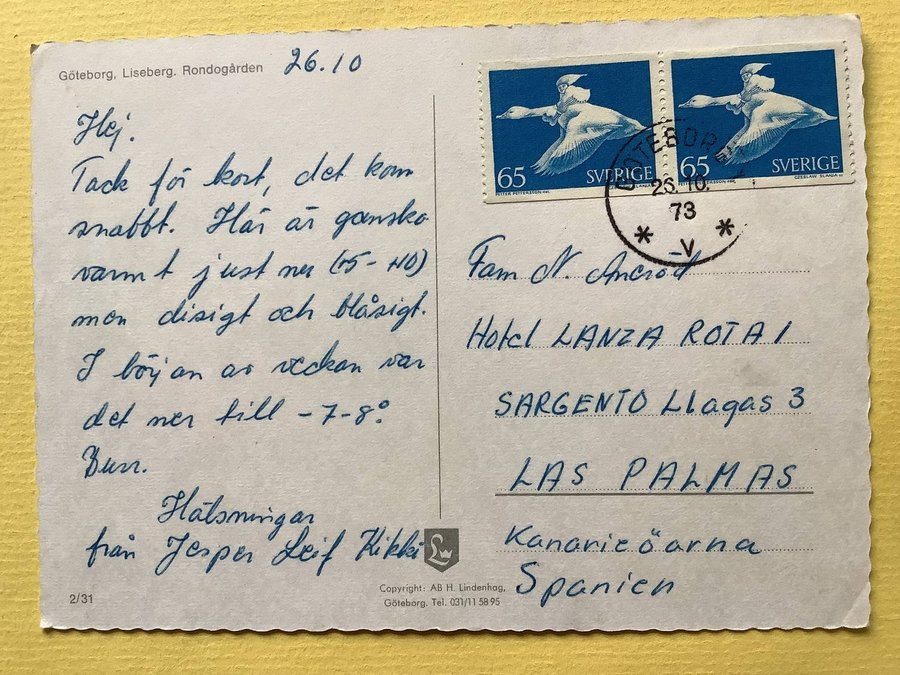 Göteborg, Liseberg. Rondogården
26.10
Hej.
Tack för kort, det kom
snabbt. Här är ganska
varmt just ner (+5 - +10)
men disigt och blåsigt.
I början av veckan var
det ner till -7-8°
Burr.
Hälsningar
från Jesper Leif Kikki
2/31
Copyright: AB H. Lindenhag,
Göteborg. Tel. 031/11 58 95
65 SVERIGE
65 SVERIGE
PETTER PETTERSSON del.
CZESLAW SLANIA sc
GÖTEBORG
26.10.
73
* V *
Fam N.
Hotel LANZA ROTA 1
SARGENTO Llagas 3
LAS PALMAS
Kanarieöarna
Spanien